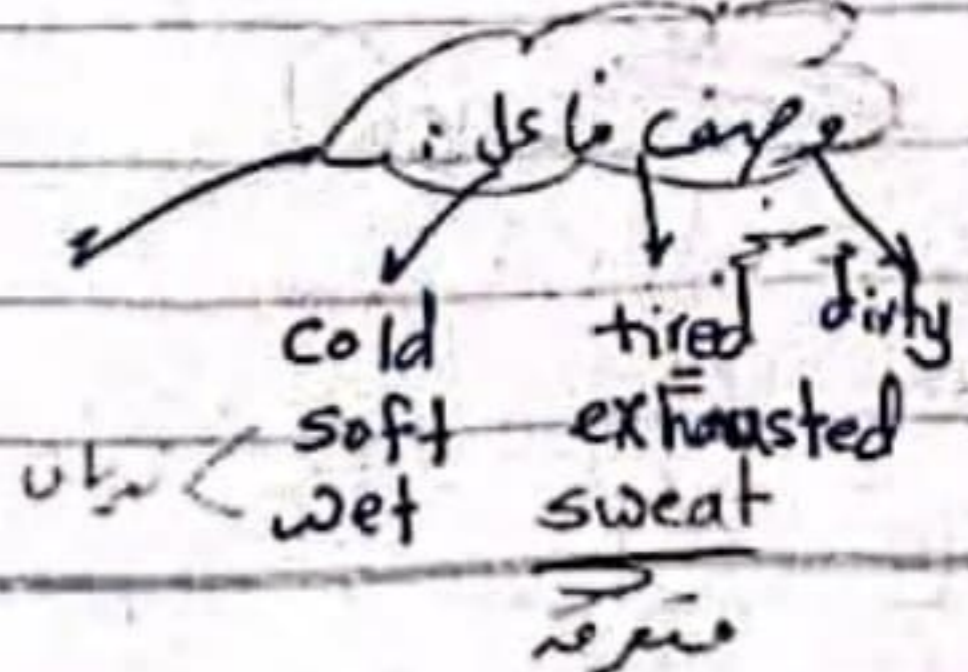 وصف فاعل:
cold tired dirty
soft = exhausted
wet sweat